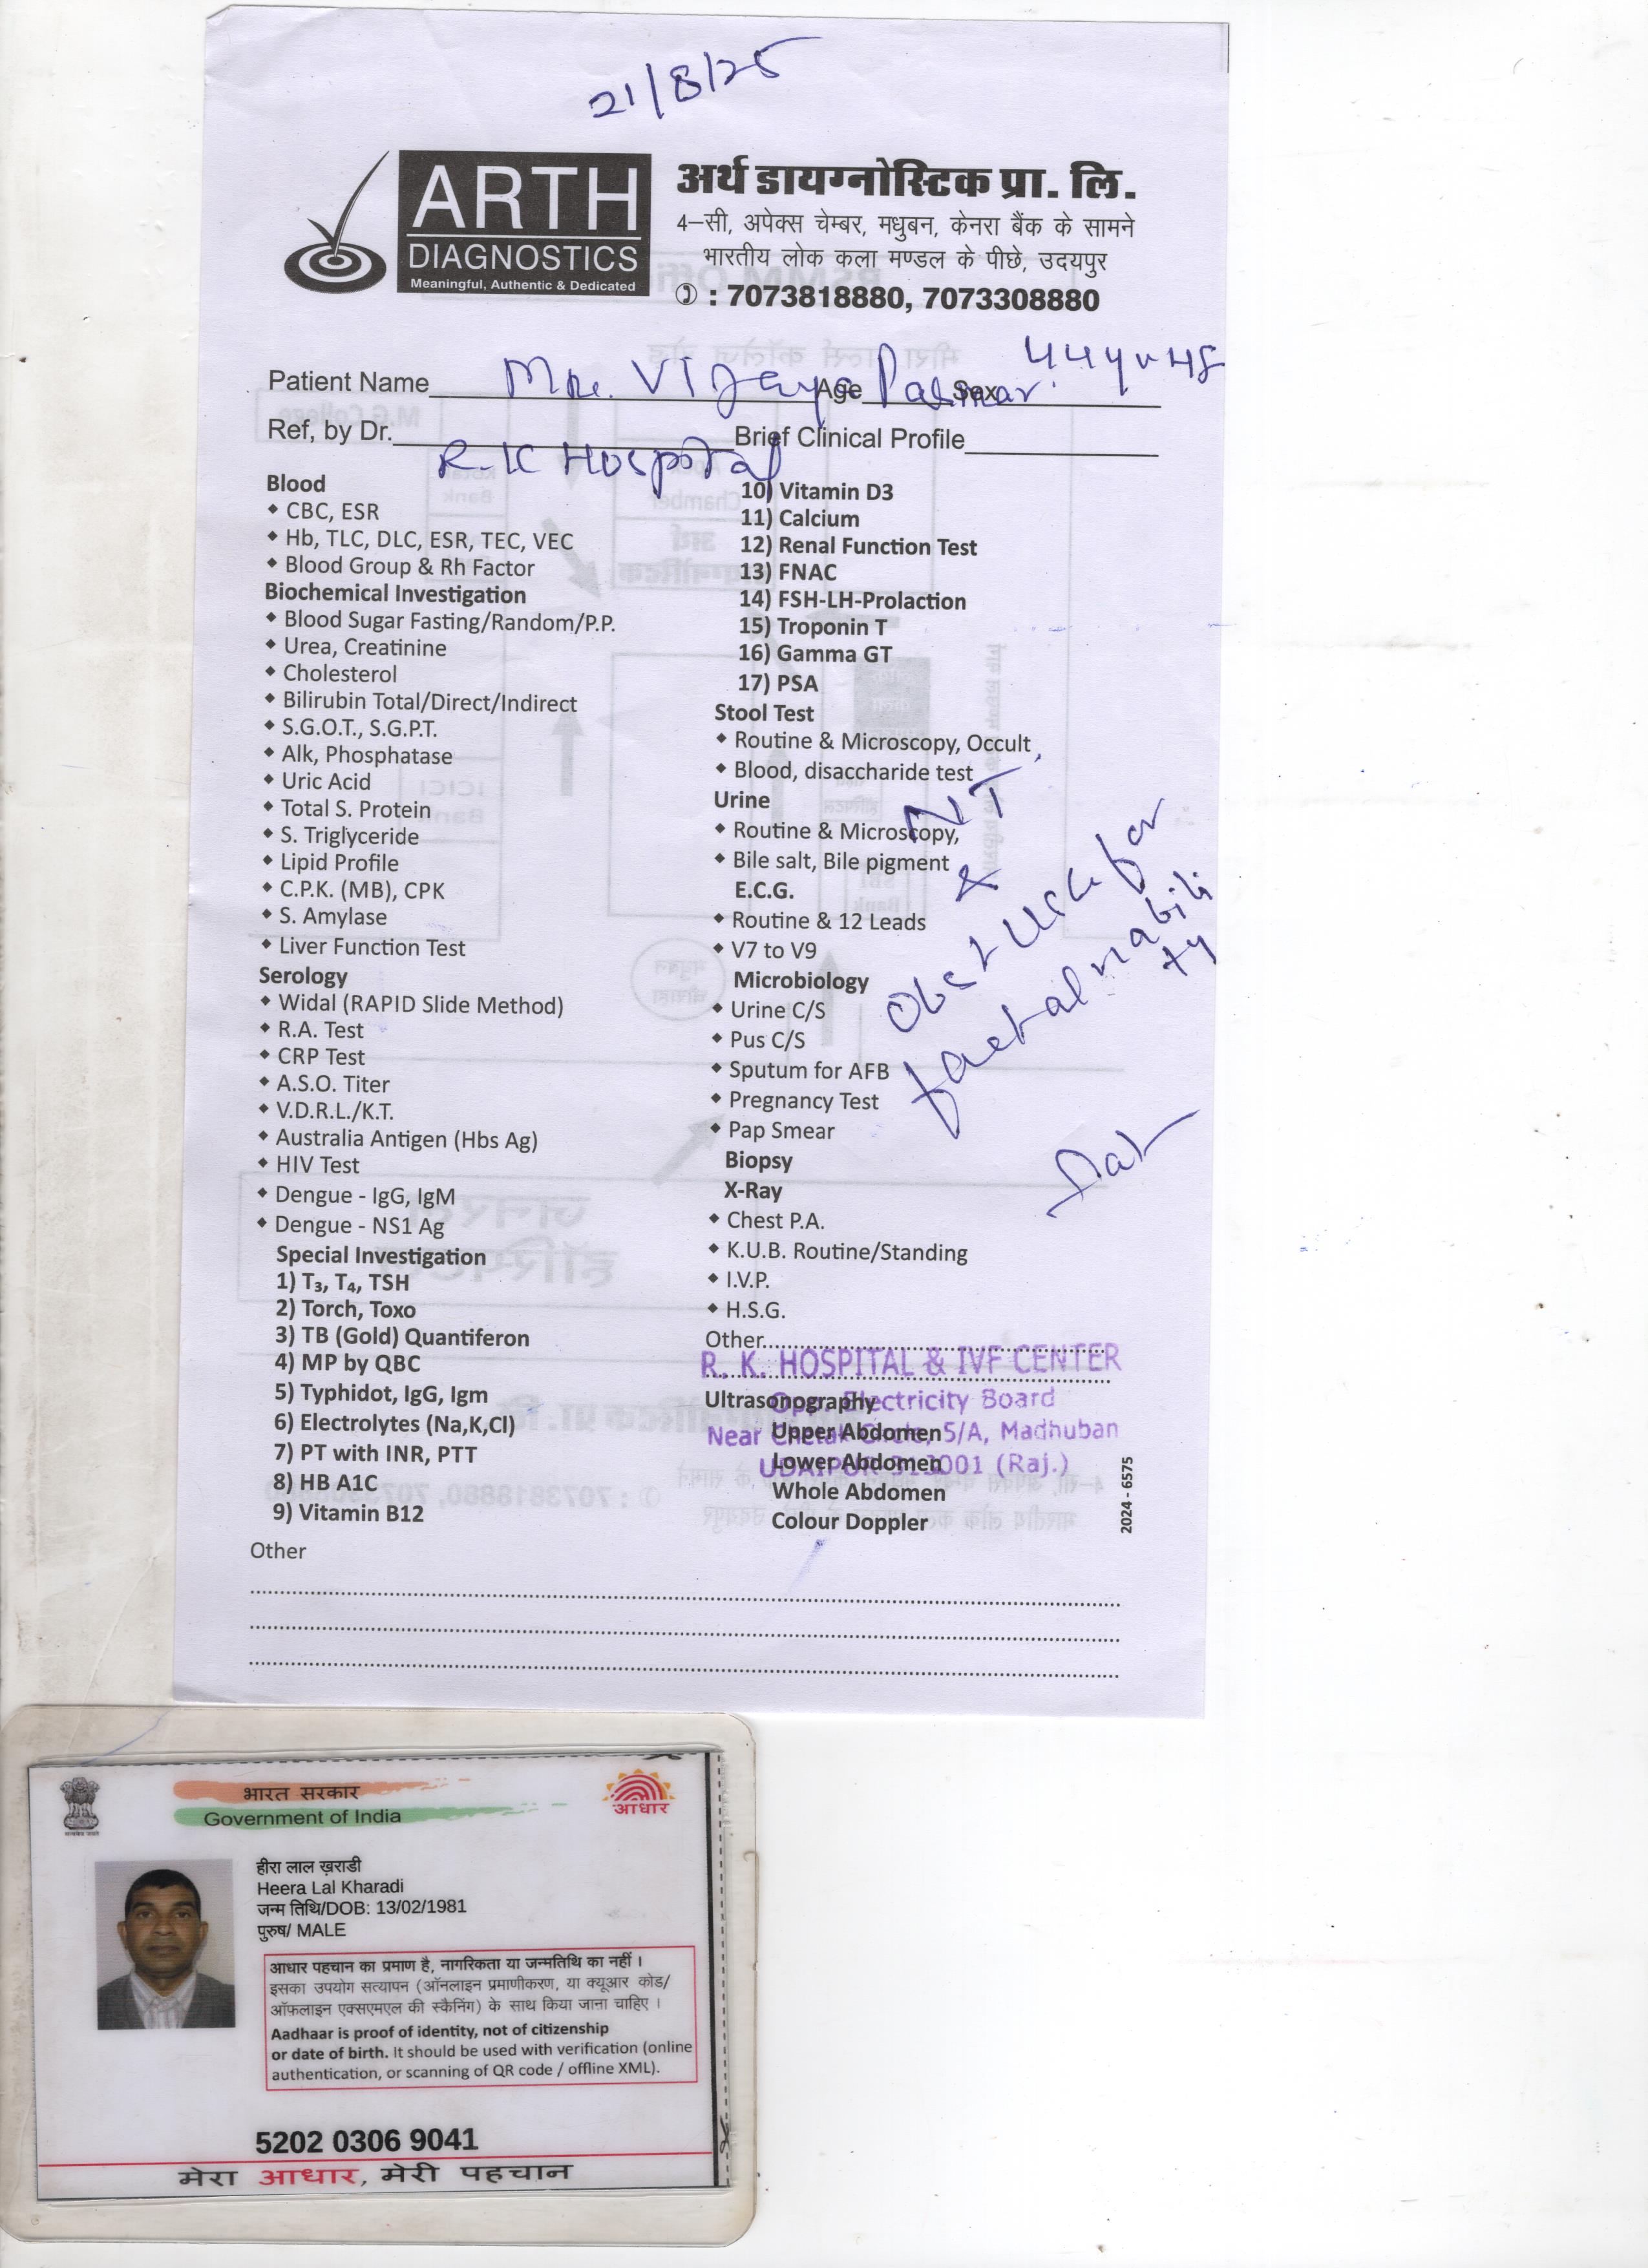 21/8/25
ARTH
DIAGNOSTICS
Meaningful, Authentic & Dedicated
अर्थ डायग्नोस्टिक प्रा. लि.
4–सी, अपेक्स चेम्बर, मधुबन, केनरा बैंक के सामने
भारतीय लोक कला मण्डल के पीछे, उदयपुर
: 7073818880, 7073308880
Patient Name Mrs. Vijaya Parmar Age Sex
Ref, by Dr. R.K Hospital Brief Clinical Profile
Blood
CBC, ESR
Hb, TLC, DLC, ESR, TEC, VEC
Blood Group & Rh Factor
Biochemical Investigation
Blood Sugar Fasting/Random/P.P.
Urea, Creatinine
Cholesterol
Bilirubin Total/Direct/Indirect
S.G.O.T., S.G.P.T.
Alk, Phosphatase
Uric Acid
Total S. Protein
S. Triglyceride
Lipid Profile
C.P.K. (MB), CPK
S. Amylase
Liver Function Test
Serology
Widal (RAPID Slide Method)
R.A. Test
CRP Test
A.S.O. Titer
V.D.R.L./K.T.
Australia Antigen (Hbs Ag)
HIV Test
Dengue - IgG, IgM
Dengue - NS1 Ag
Special Investigation
1) T₃, T₄, TSH
2) Torch, Toxo
3) TB (Gold) Quantiferon
4) MP by QBC
5) Typhidot, IgG, Igm
6) Electrolytes (Na,K,Cl)
7) PT with INR, PTT
8) HB A1C
9) Vitamin B12
10) Vitamin D3
11) Calcium
12) Renal Function Test
13) FNAC
14) FSH-LH-Prolaction
15) Troponin T
16) Gamma GT
17) PSA
Stool Test
Routine & Microscopy, Occult
Blood, disaccharide test
Urine
Routine & Microscopy,
Bile salt, Bile pigment
E.C.G.
Routine & 12 Leads
V7 to V9
Microbiology
Urine C/S
Pus C/S
Sputum for AFB
Pregnancy Test
Pap Smear
Biopsy
X-Ray
Chest P.A.
K.U.B. Routine/Standing
I.V.P.
H.S.G.
Other
NT
&
Obst for
R. K. HOSPITAL & IVF CENTER
Opp. Electricity Board
Near Chetak Circle, 5/A, Madhuban
UDAIPUR-313001 (Raj.)
Ultrasonography
Upper Abdomen
Lower Abdomen
Whole Abdomen
Colour Doppler
2024 - 6575
Other
भारत सरकार
Government of India
आधार
हीरा लाल ख़राडी
Heera Lal Kharadi
जन्म तिथि/DOB: 13/02/1981
पुरुष/ MALE
आधार पहचान का प्रमाण है, नागरिकता या जन्मतिथि का नहीं ।
इसका उपयोग सत्यापन (ऑनलाइन प्रमाणीकरण, या क्यूआर कोड/
ऑफ़लाइन एक्सएमएल की स्कैनिंग) के साथ किया जाना चाहिए ।
Aadhaar is proof of identity, not of citizenship
or date of birth. It should be used with verification (online
authentication, or scanning of QR code / offline XML).
5202 0306 9041
मेरा आधार, मेरी पहचान